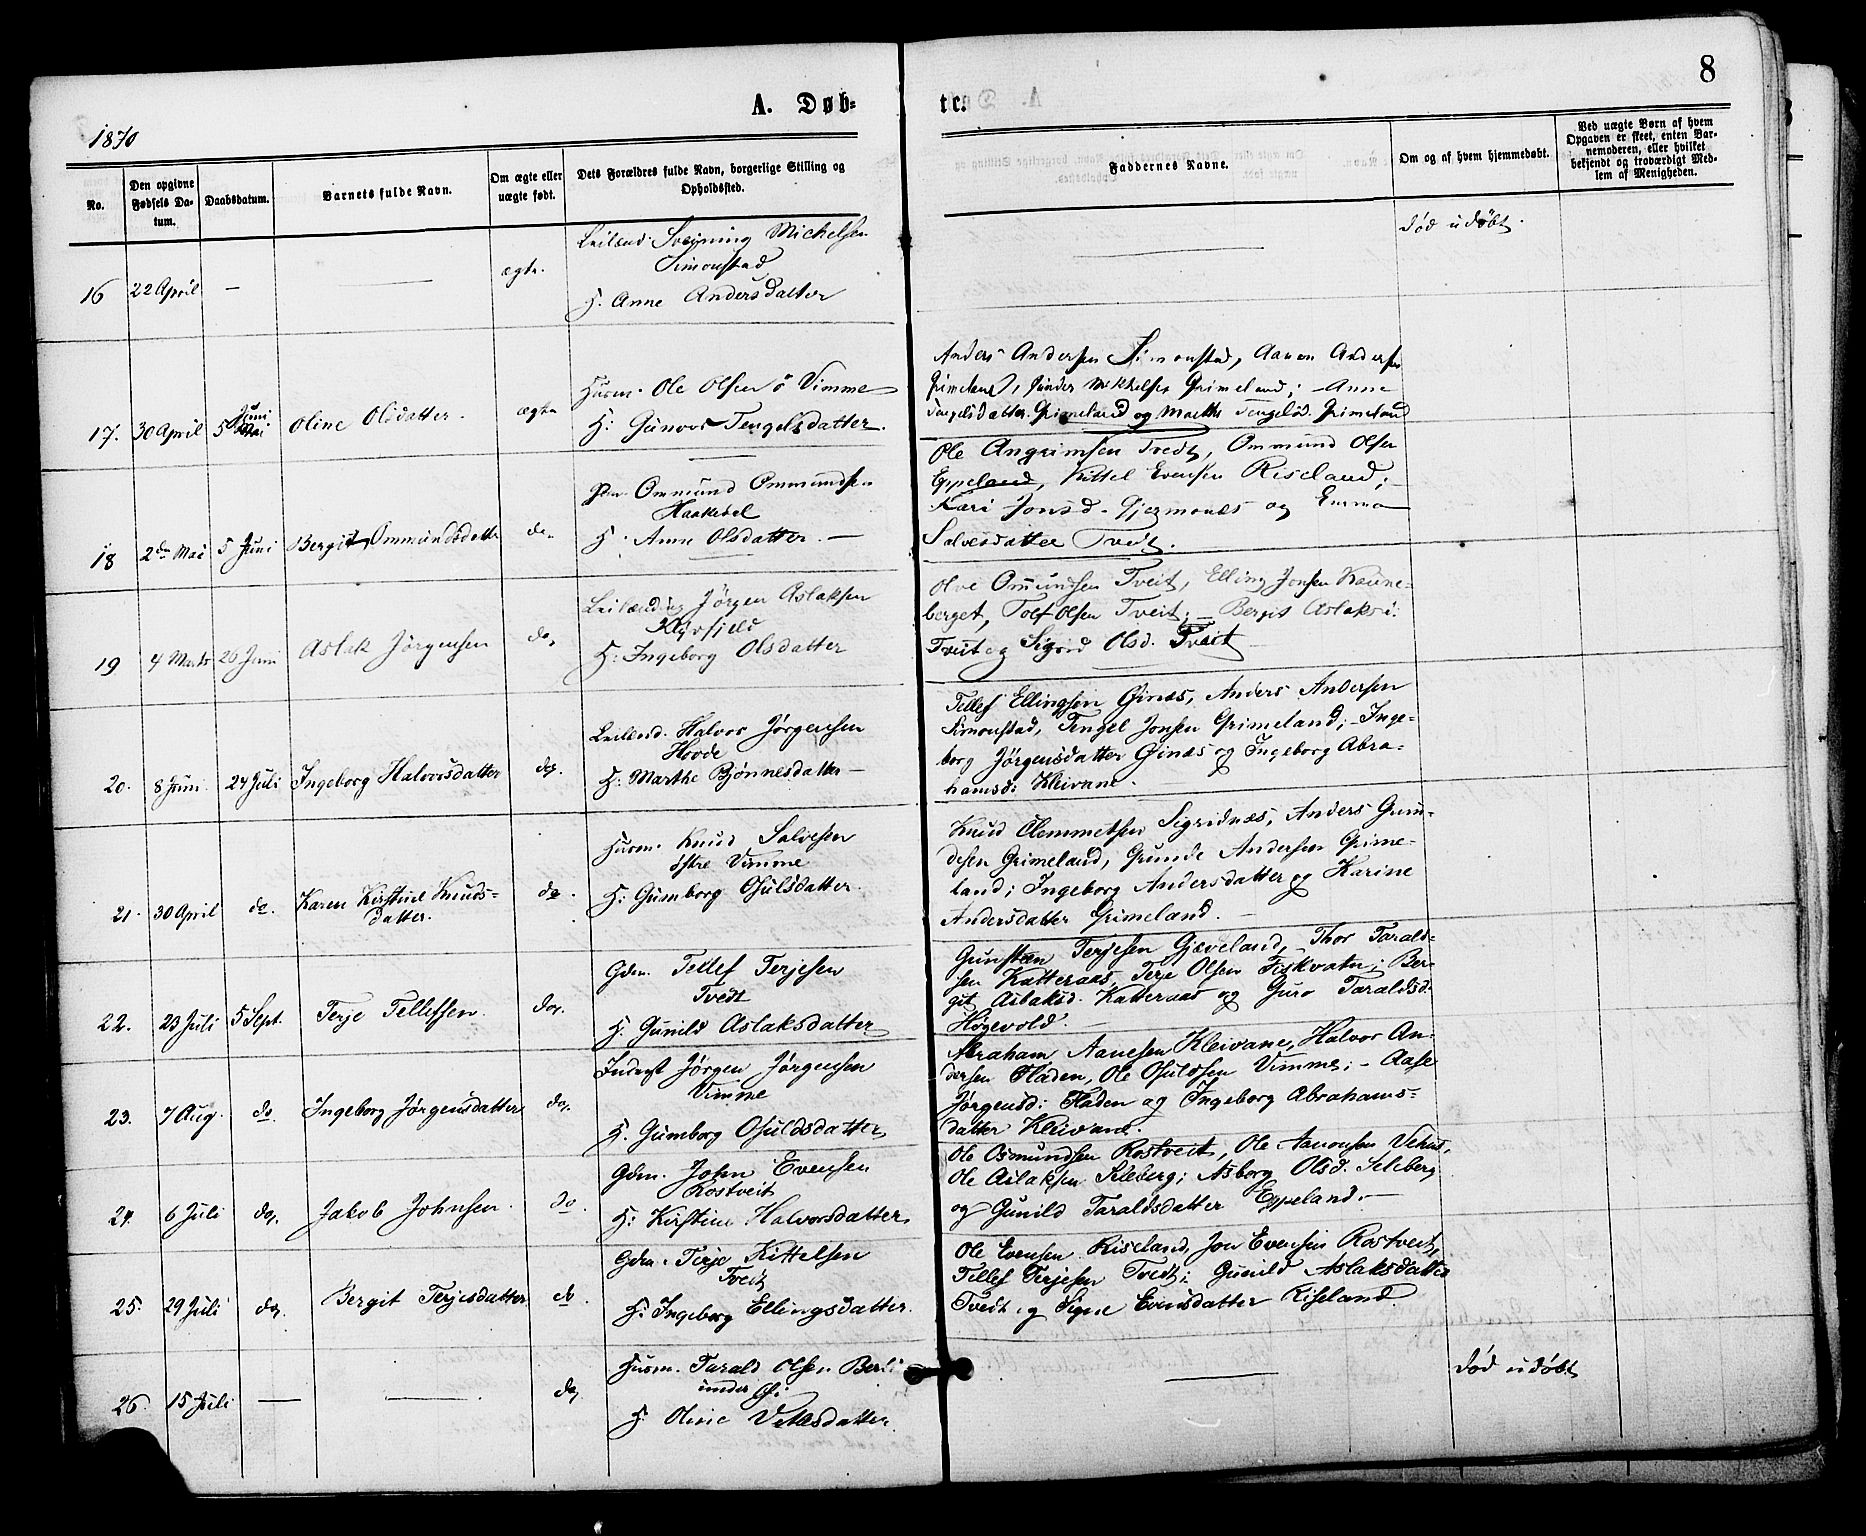 8
A. Døb-
te.
1870
No.
Den opgivne Fødsels Datum.
Daabsdatum.
Barnets fulde Navn.
Om ægte eller uægte født.
Dets Forældres fulde Navn, borgerlige Stilling og Opholdssted.
Faddernes Navne.
Om og af hvem hjemmedøbt.
Ved uægte Børn af hvem Opgaven er skeet, enten Barnemoderen, eller hvilket bekjendt og troværdigt Medlem af Menigheden.
16 22 April — — ægte.
Leilænd. Svejning Mickelsen
Simonstad
H. Anne Andersdatter
død udøbt.
17. 30 April 5 Juni Oline Olsdatter. ægte
Husm. Ole Olsen ö Vimme
H: Gunvor Tengelsdatter.
Anders Andersen Simonstad, Aanon Andersen
Grimeland, Gunder Mikkelsen Grimeland; - Anne
Tengelsdatter Grimeland og Marthe Tengelsd. Grimeland
18 2den Mai 5 Juni Bergit Ommundsdatter do.
Gdm. Ommund Ommundsen
Haakedal
H. Anne Olsdatter. —
Ole Angrimsen Tvedt, Ommund Olsen
Eppeland, Kittel Evensen Riseland; -
Kari Jonsd. Gjermones og Emma
Salvesdatter Tvedt.
19 4 Marts 26 Juni Aslak Jörgensen do.
Leilænding Jörgen Aslaksen
H: Ingeborg Olsdatter
Olve Omundsen Tveit, Elling Jonsen Kaune-
berget, Tolf Olsen Tveit; - Bergit Aslaksd:
Tveit og Sigrid Olsd. Tveit
20. 8 Juni 24 Juli Ingeborg Halvorsdatter do.
Leilænd. Halvor Jørgensen
Hovde
H: Marthe Bjönnesdatter —
Tellef Ellingsen Øinæs, Anders Andersen
Simonstad, Tengel Jonsen Grimeland; - Inge-
borg Jørgensdatter Øinæs og Ingeborg Abra-
hamsd: Kleivane.
21 30 April do. Karen Kirstine Knuds-
datter. do.
Husm. Knud Salvesen
østre Vimme
H: Gumborg Osulsdatter.
Knud Clemmetsen Sigridnæs, Anders Gun-
desen Grimeland, Grunde Andersen Grime-
land; Ingeborg Andersdatter og Karine
Andersdatter Grimeland. —
22. 23 Juli 5 Sept. Terje Tellefsen. do.
Gdm. Tellef Terjesen
Tvedt
H. Gunild Aslaksdatter
Gunsteen Terjesen Gjæveland, Thor Tarald-
sen Katteraas, Terje Olsen Fiskvatn; Ber-
git Aslaksd. Katteraas og Guro Taraldsd.
Høgevold. —
23. 7 Aug. do. Ingeborg Jørgensdatter do.
Inderst Jörgen Jörgensen
Vimme
H. Gumborg Osuldsdatter
Abraham Aanesen Kleivane, Halvor An-
dersen Fladen, Ole Osuldsen Vimme; - Aase
Jørgensd: Fladen og Ingeborg Abrahams-
datter Kleivane.
24. 6 Juli do. Jakob Johnsen. do.
Gdm. John Evensen
Rostveit
H: Kirstine Halvorsdatter
Ole Osmundsen Rostveit, Ole Aanonsen Vehus,
Ole Aslaksen Seleberg; Asborg Olsd. Seleberg
og Gunild Taraldsdatter Eppeland. —
25. 29 Juli do. Bergit Terjesdatter do.
Gdm. Terje Kittelsen
Tvedt
H: Ingeborg Ellingsdatter.
Ole Evensen Riseland, Jon Evensen Rostveit,
Tellef Terjesen Tvedt; Gunild Aslaksdatter
Tvedt og Signe Evensdatter Riseland.
26. 15 Juli — — do.
Husm. Tarald Olsen Berli
under Ø:
H. Olene Vetlesdatter.
død udøbt